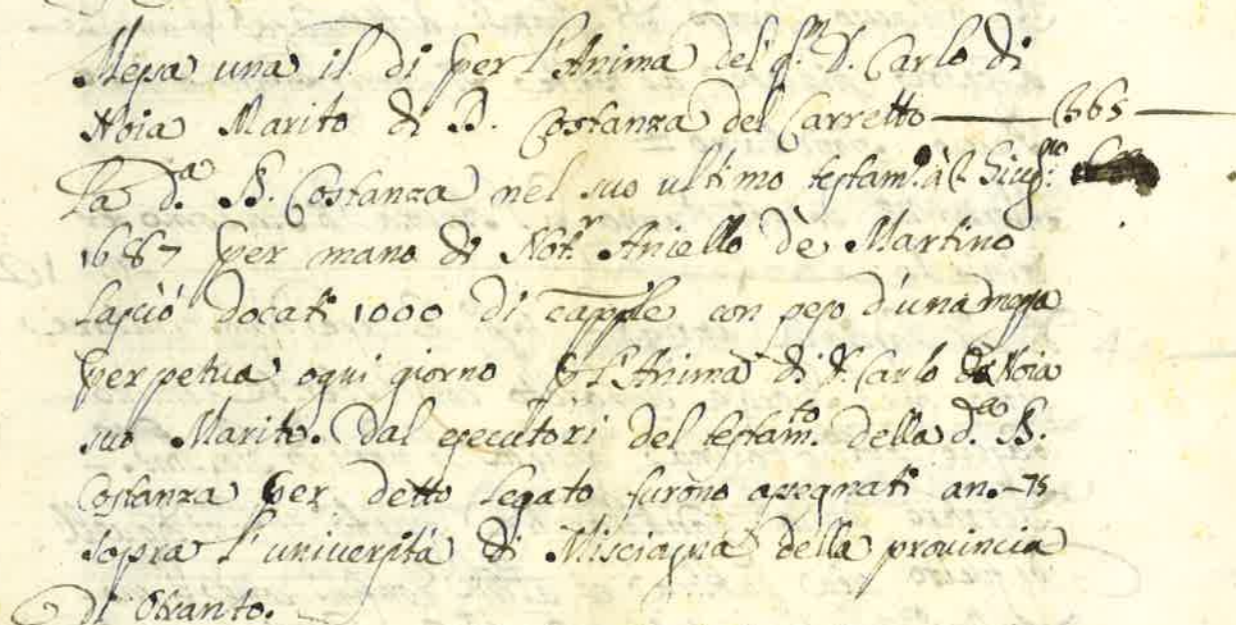 Messa una il di per l'Anima del q.m D. Carlo di
Noia Marito di D. Costanza del Carretto — 365 —
La d.a D. Costanza nel suo ultimo testam.to à
1687 per mano di Not.r Aniello de Martino
Lasciò docati 1000 di capple con peso d'una messa
perpetua ogni giorno p l'Anima di D. Carlo di Noia
suo Marito. Dal esecutori del testam.to della d.a D.
Costanza per detto legato furono assegnati an. - 75
sopra l'università di Misciagna della prouincia
di Otranto.